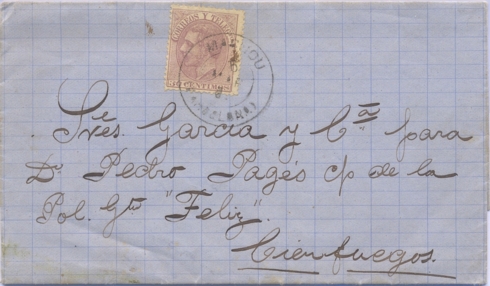 CORREOS Y TELE
MAHOU
Sres. Garcia y Cª para
Dn Pedro Pagés c/o de la
Pol. Gta "Feliz".
Cienfuegos.